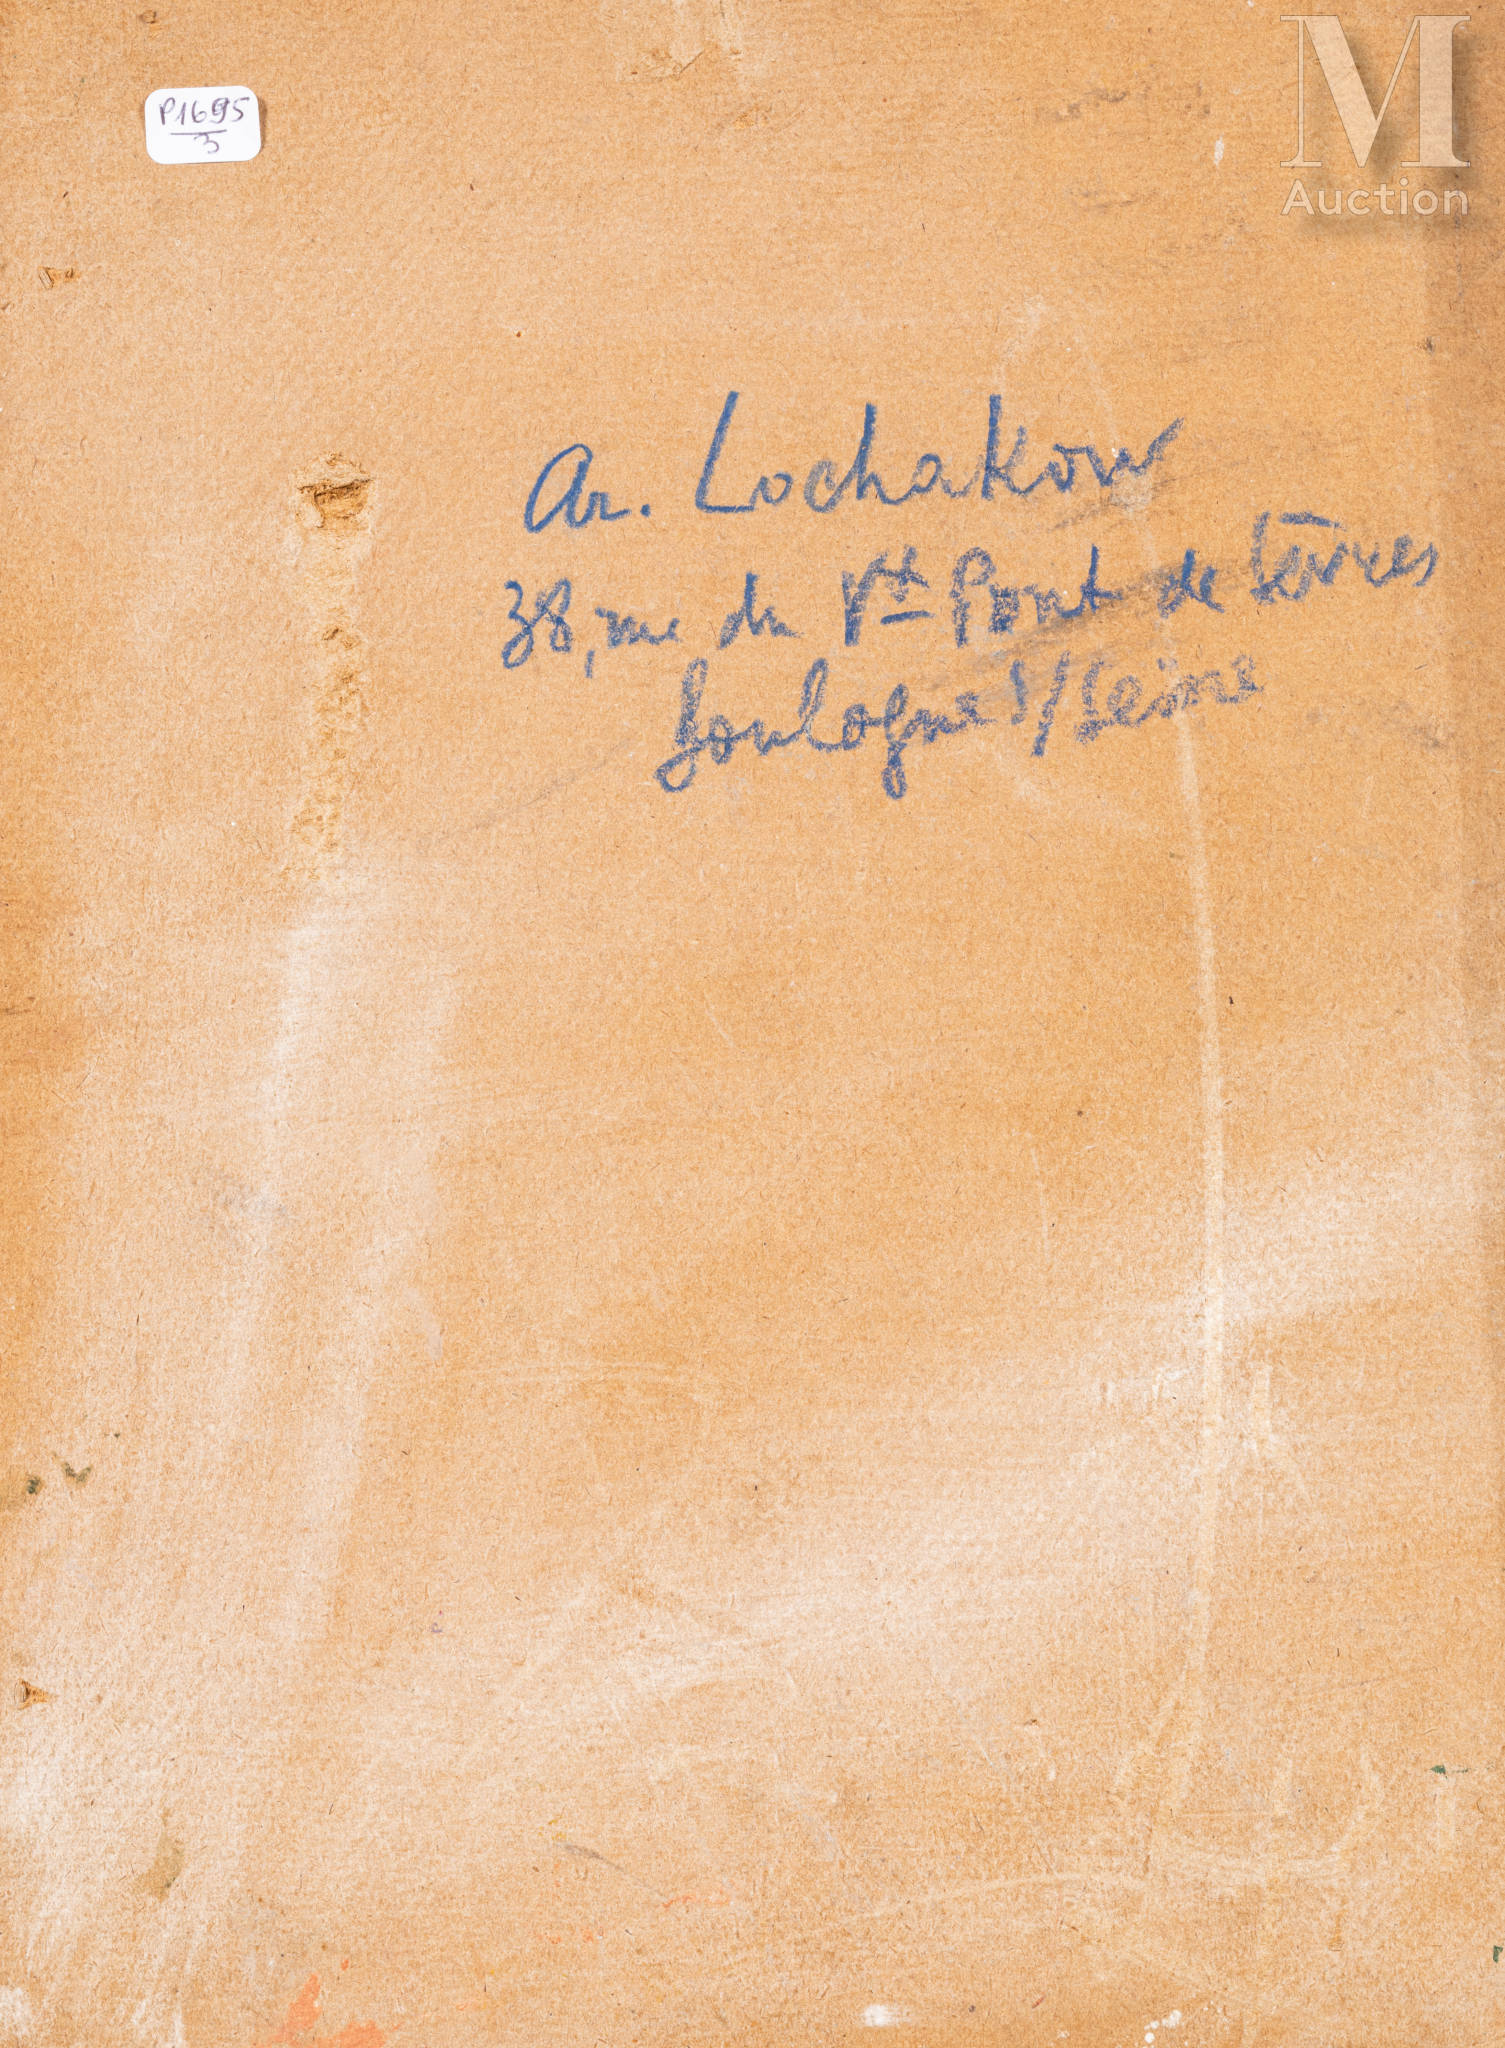 P1695
3
M
Auction
Ar. Lochakow
38, rue du Vx Pont de Sèvres
Boulogne s/Seine